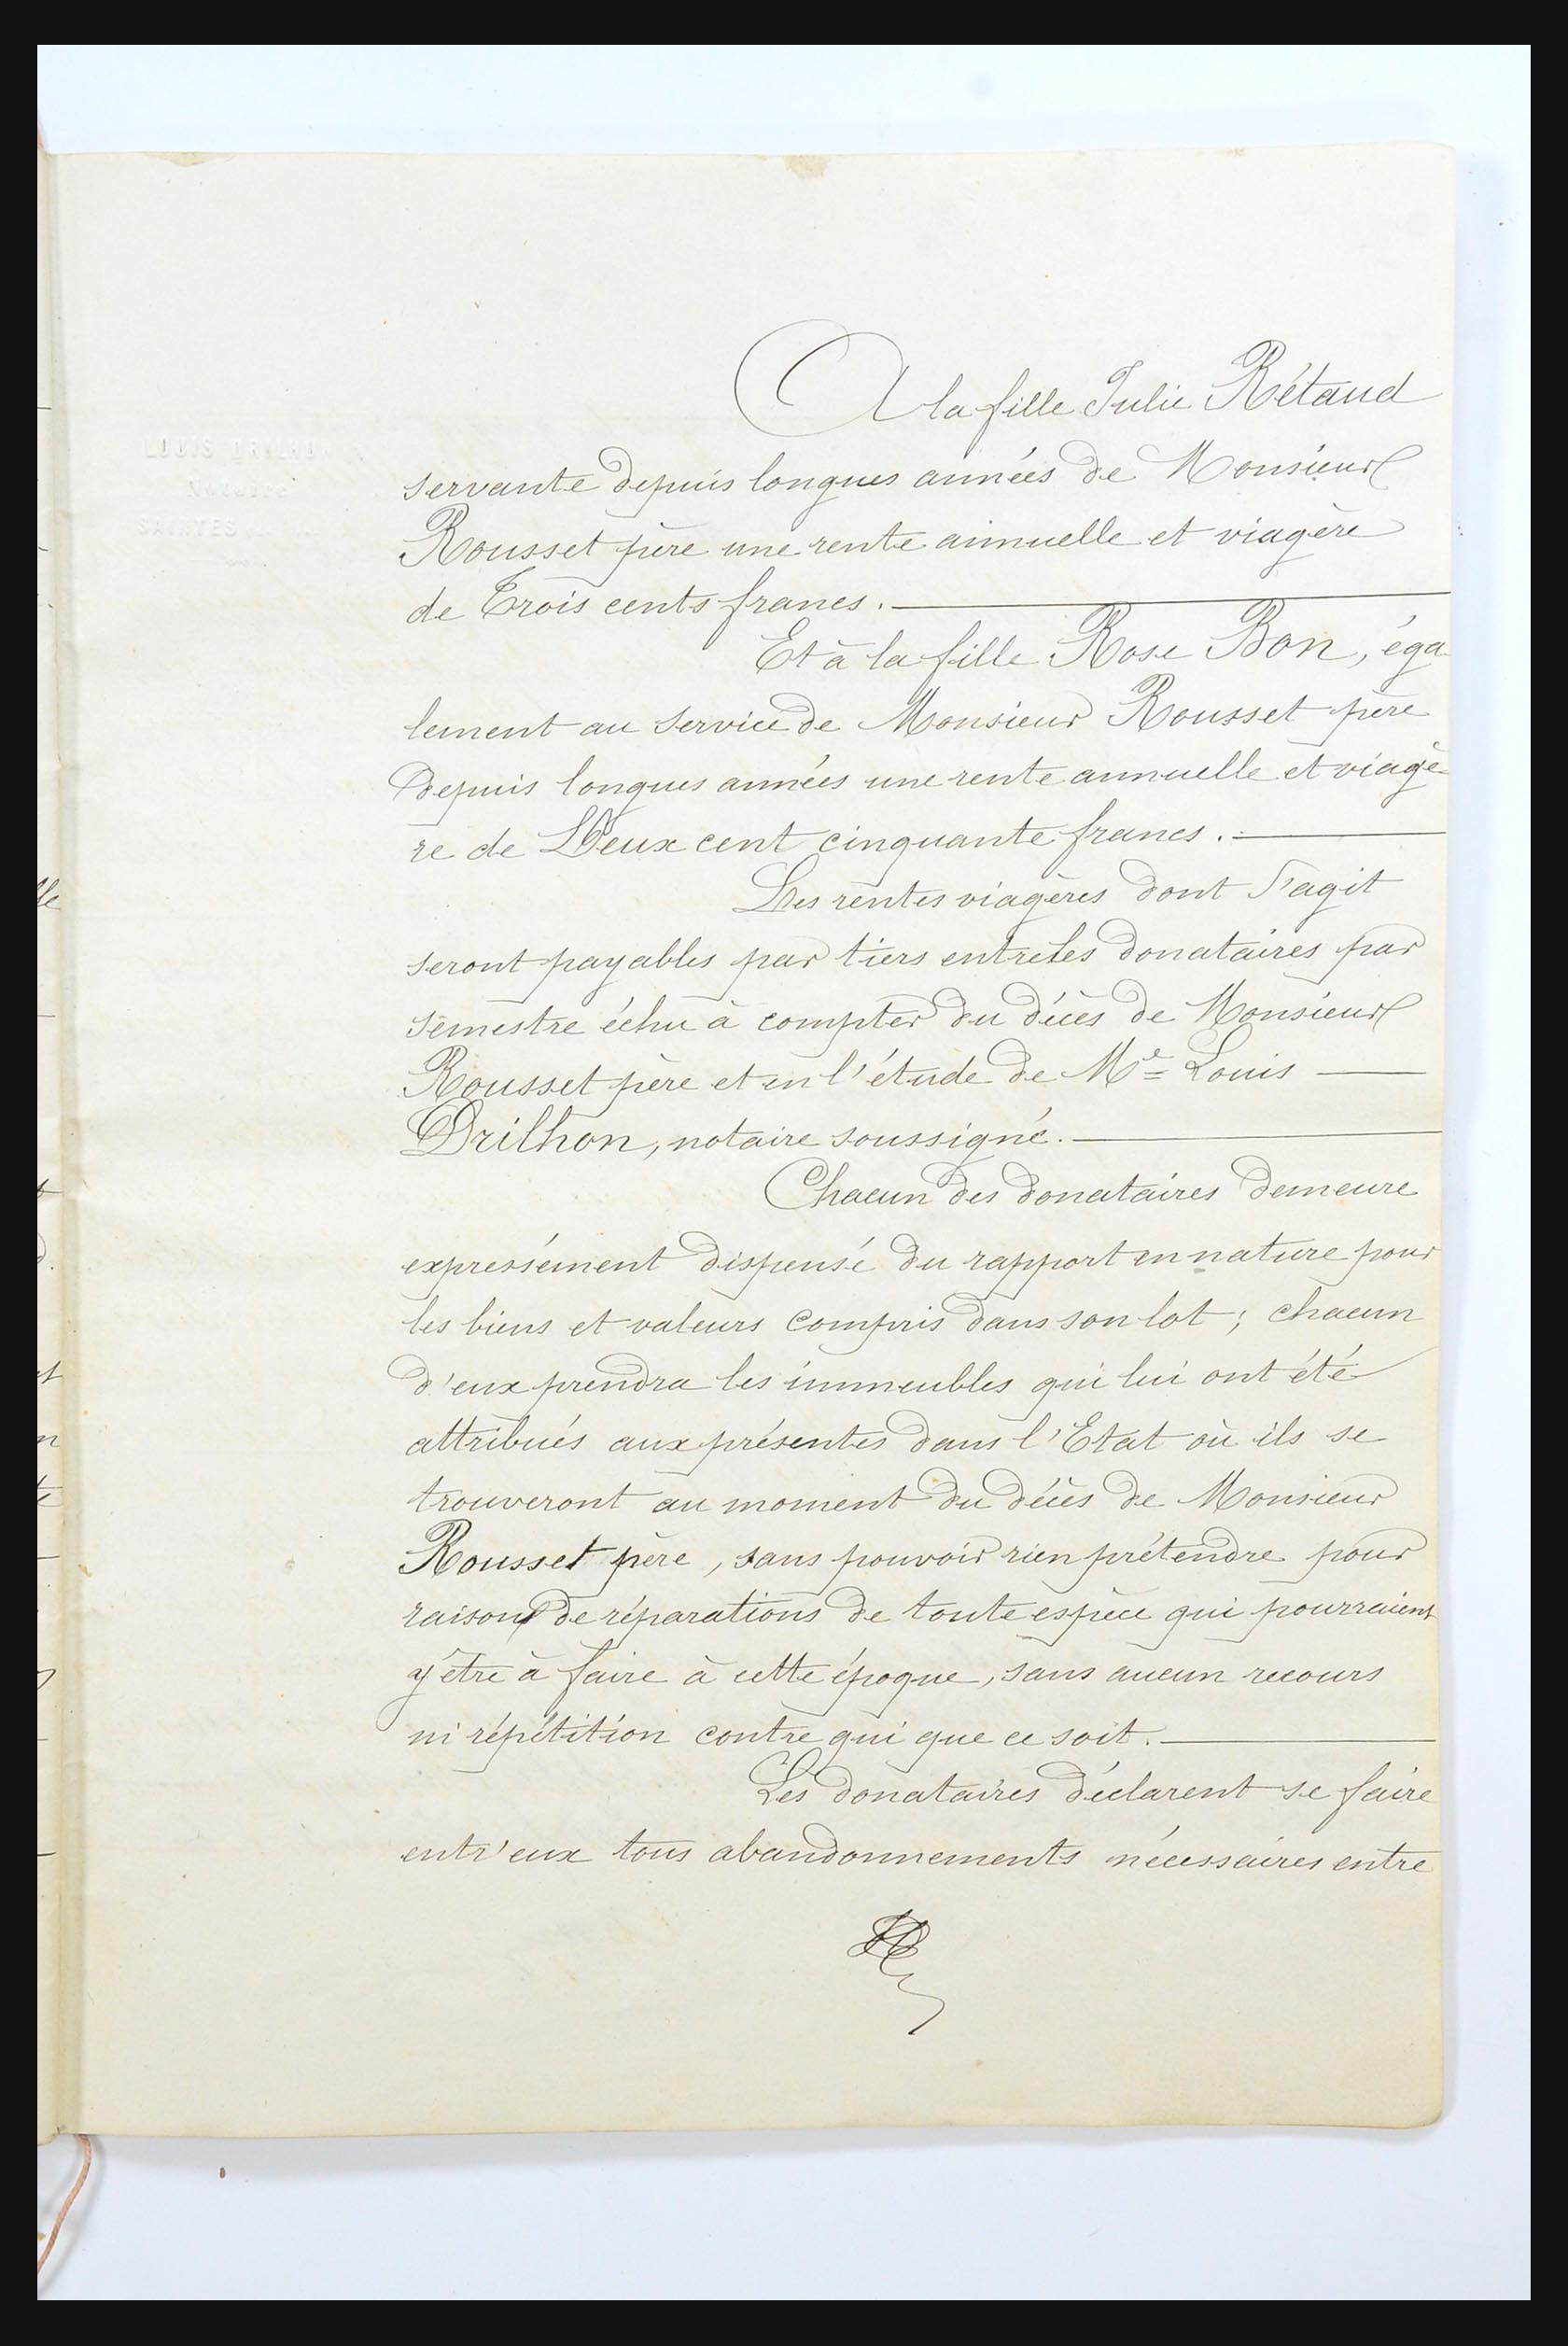 LOUIS DRILHON
Notaire
SAINTES
A la fille Julie Rétaud
servante depuis longues années de Monsieur
Rousset père une rente annuelle et viagère
de Trois cents francs.
Et à la fille Rose Bon, éga-
lement au service de Monsieur Rousset père
depuis longues années une rente annuelle et viagè-
re de Deux cent cinquante francs.
Les rentes viagères dont s'agit
seront payables par tiers entre les donataires par
semestre échu à compter du décès de Monsieur
Rousset père et en l'étude de Me Louis
Drilhon, notaire soussigné.
Chacun des donataires demeure
expressément dispensé du rapport en nature pour
les biens et valeurs compris dans son lot; chacun
d'eux prendra les immeubles qui lui ont été
attribués aux présentes dans l'Etat où ils se
trouveront au moment du décès de Monsieur
Rousset père, sans pouvoir rien prétendre pour
raison de réparations de toute espèce qui pourraient
y être à faire à cette époque, sans aucun recours
ni répétition contre qui que ce soit.
Les donataires déclarent se faire
entr'eux tous abandonnements nécessaires entre